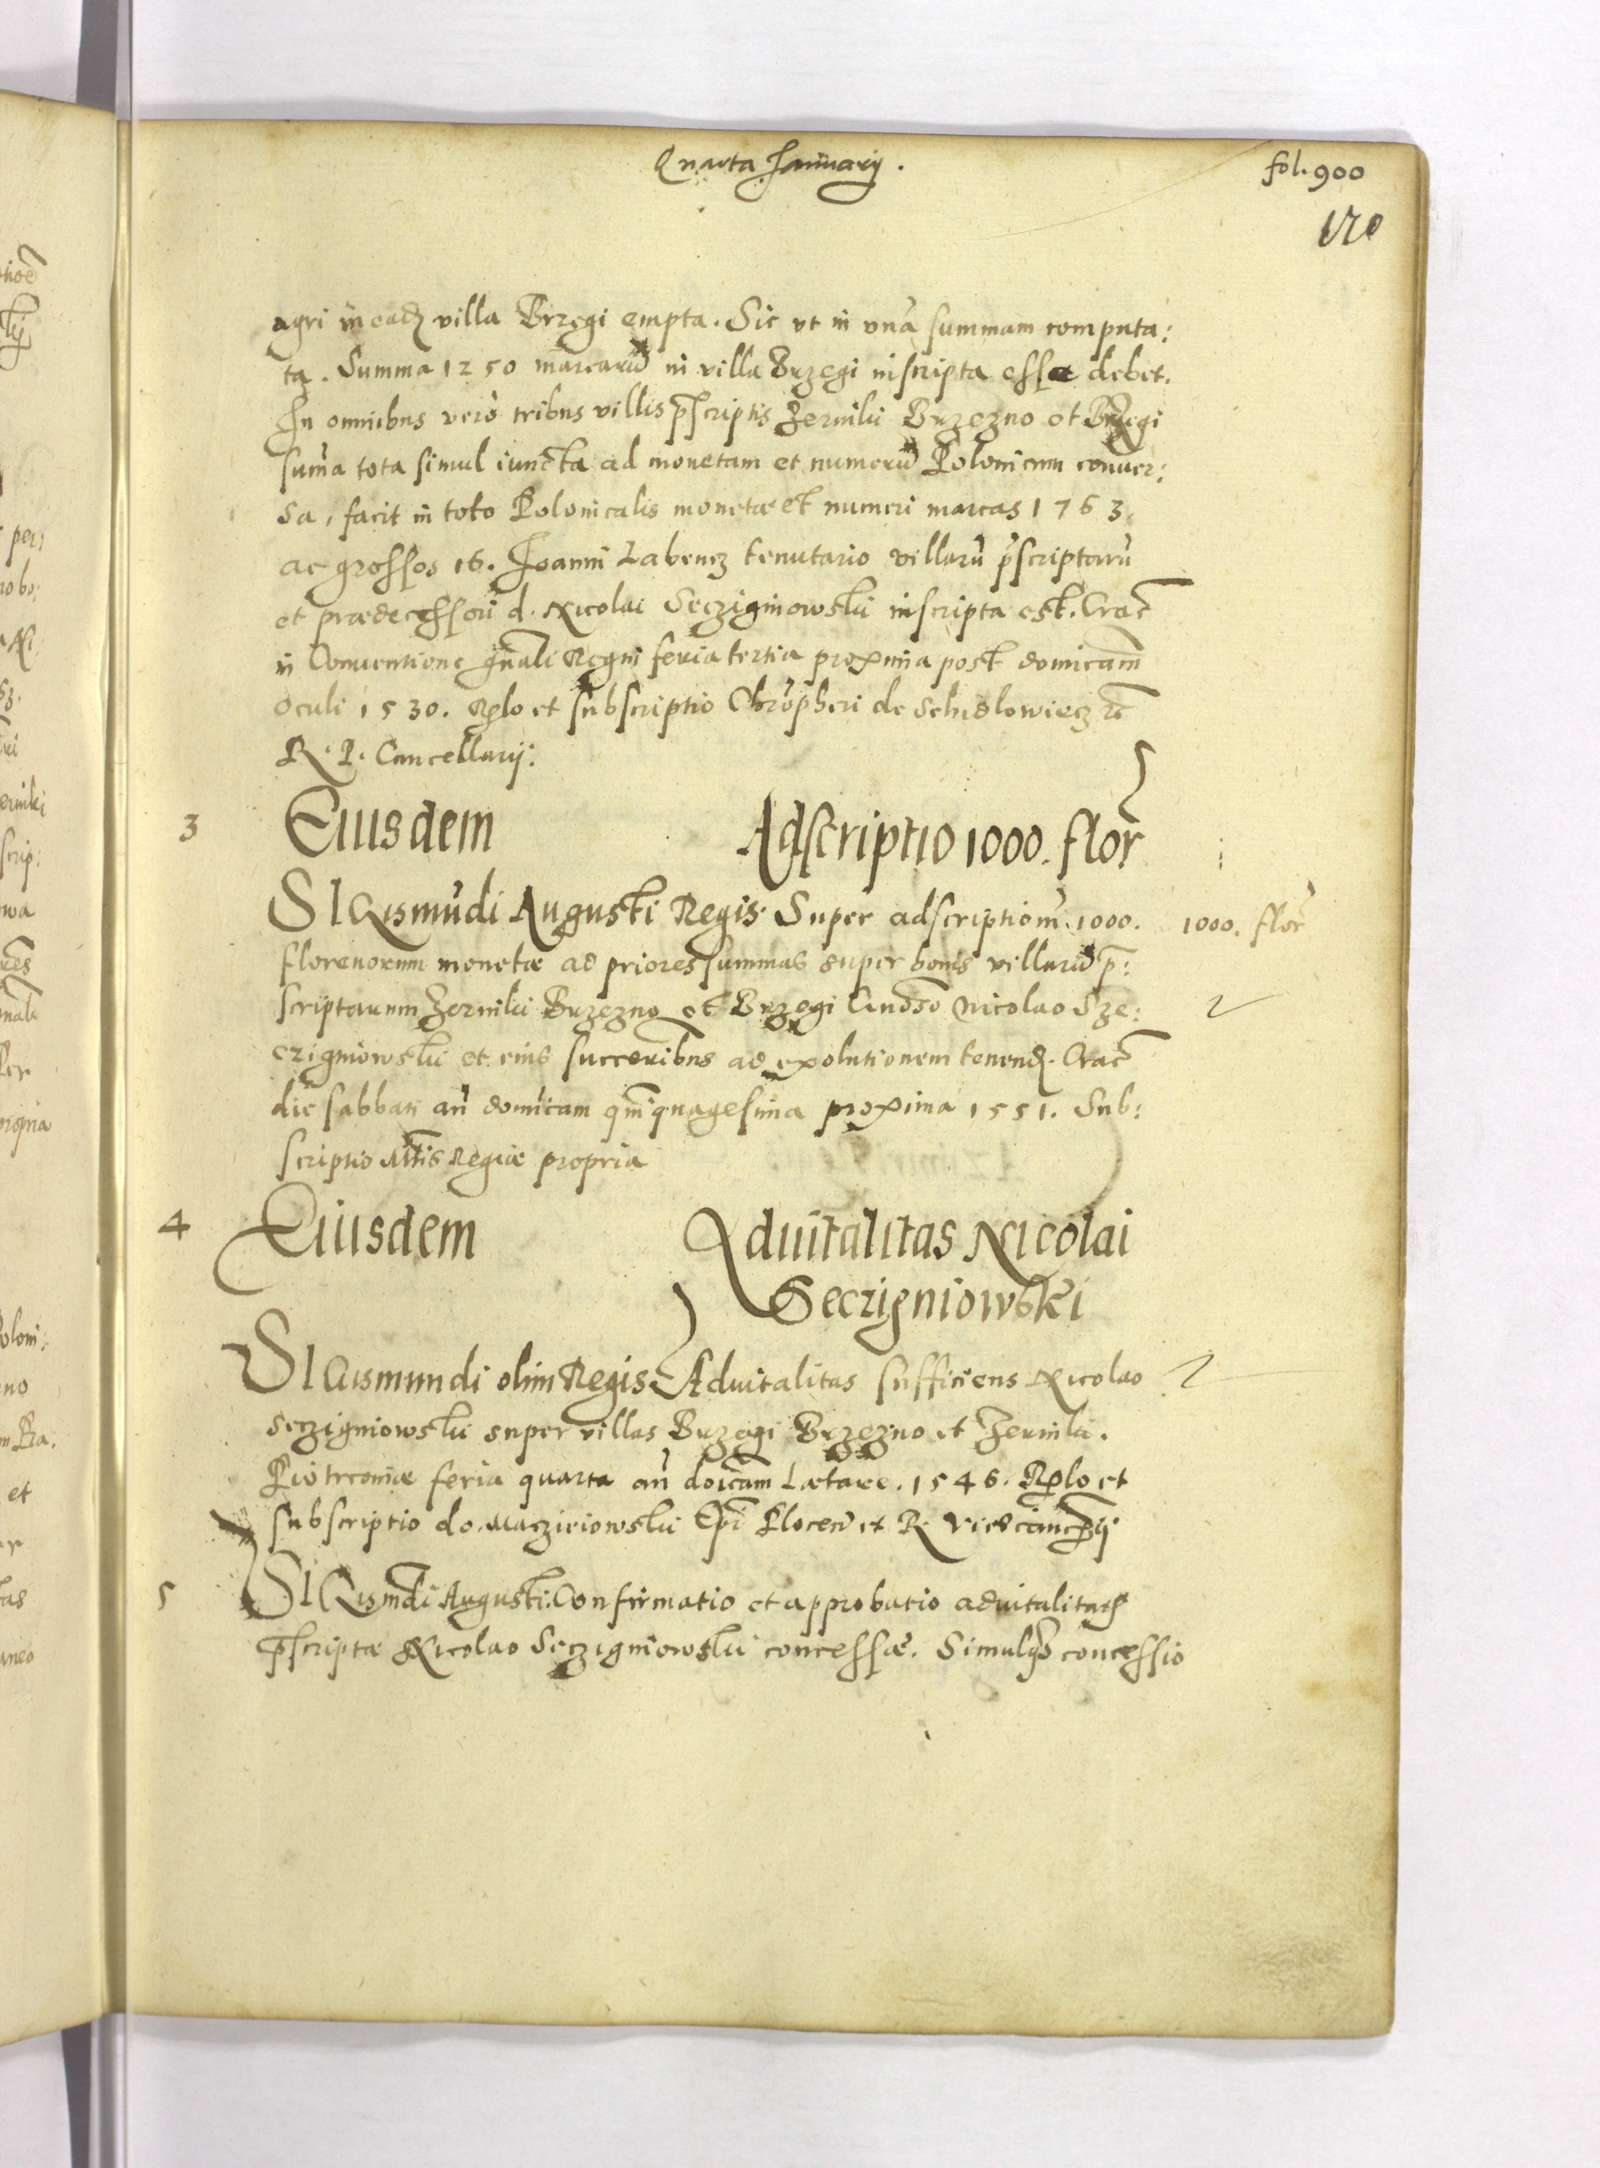 Quarta Januarij.
fol. 900
170
agri in eadē villa Brzegi empta. Sic vt in vnā summam computa:
ta. Summa 1250 marcarū in villa Brzegi inscripta esse debet.
In omnibus verò tribus villis p̄scriptis Zerniki Brzezno et Brzegi
sum̄a tota simul iuncta ad monetam et numerū Polonicum conuer:
sa, facit in toto Polonicalis monetæ et numeri marcas 1763.
ac grossos 16. Joanni Labencz tenutario villarū p̄scriptarū
et prædecessori d. Nicolai Seczigniowski inscripta est. Crac̄
in Conuentione gn̄ali Regni feria tertia proxima post domicam̄
Oculi 1530. Rglo et subscriptio Chrūpheri de Schidlowiecz rc̄
R. P. Cancellarij:
3
Eiusdem
Adscriptio 1000. flor
SIGismūdi Augusti Regis. Super adscriptionē 1000.
1000. flor
florenorum monetæ ad priores summas super bonis villarū p̄:
scriptarum Zerniki Brzezno et Brzegi Gnoso Nicolao Sze:
czigniowski et eius succeoribus ad exolutionem tenend. Crac̄
die sabbati an̄ domīcam quīquagesima proxima 1551. Sub:
scriptio Mt̄tis Regiæ propria
4
Eiusdem
Aduitalitas Nicolai
Seczigniowski
SIGismundi olim Regis Aduitalitas sufficiens Nicolao
Seczigniowski super villas Brzegi Brzezno et Zerniki.
Piotrcouiæ feria quarta an̄ doīcam Lætare. 1546. Rglo et
subscriptio do. Macziciowski Ep̄i Plocen̄ et R. Vicecancrij
5
SIGismd̄i Augusti. Confirmatio et approbatio aduitalitatis
p̄scriptæ Nicolao Seczigniowski concessæ. Simulq̄ concessio